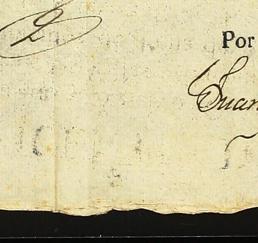 2
Por
Juan